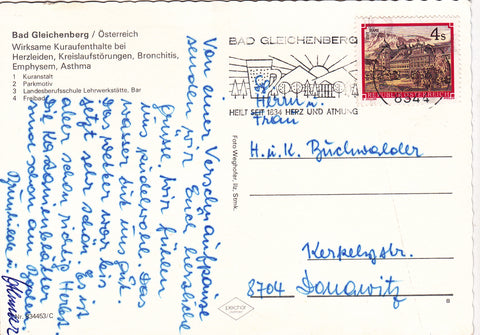 Bad Gleichenberg / Österreich
Wirksame Kuraufenthalte bei
Herzleiden, Kreislaufstörungen, Bronchitis,
Emphysem, Asthma
1 Kuranstalt
2 Parkmotiv
3 Landesberufsschule Lehrwerkstätte, Bar
4 Freibad
Von einer Verschnaufpause
senden wir Euch herzliche
Grüsse. Wir fühlen
uns pudelwohl. Das
Wasser tut uns gut.
Das Wetter war bis
jetzt sehr schön. Es ist
aber schon richtig Herbst.
Die Kastanienblätter
sind schon am Boden
Nr. 934453/C
Foto Weghofer, Ilz, Stmk.
BAD GLEICHENBERG
HEILT SEIT 1834 HERZ UND ATMUNG
8344
4 S
REPUBLIK ÖSTERREICH
Herrn u.
Frau
H. u. K. Buchwalder
Kerpelystr.
8704 Donawitz